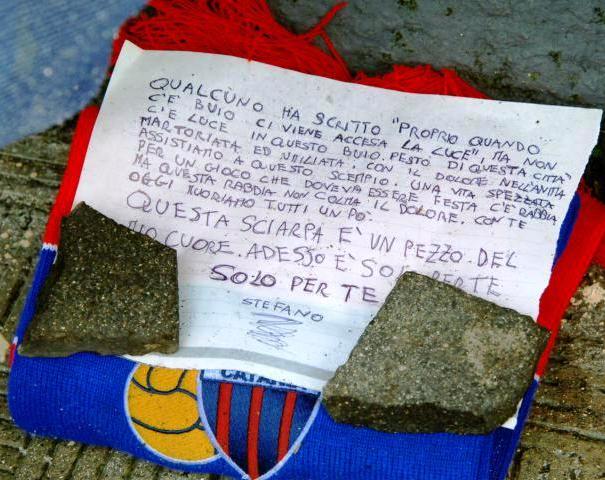 QUALCUNO HA SCRITTO "PROPRIO QUANDO
C'E' BUIO CI VIENE ACCESA LA LUCE", MA NON
C'E LUCE IN QUESTO BUIO PESTO DI QUESTA CITTA'
MARTORIATA ED UMILIATA. CON IL DOLORE NELL'ANIMA
ASSISTIAMO A QUESTO SCEMPIO. UNA VITA SPEZZATA
PER UN GIOCO CHE DOVEVA ESSERE FESTA C'E' RABBIA
MA QUESTA RABBIA NON COLMA IL DOLORE. CON TE
OGGI MUORIAMO TUTTI UN PO'.
QUESTA SCIARPA E' UN PEZZO DEL
MIO CUORE. ADESSO E' PER TE
SOLO PER TE
STEFANO